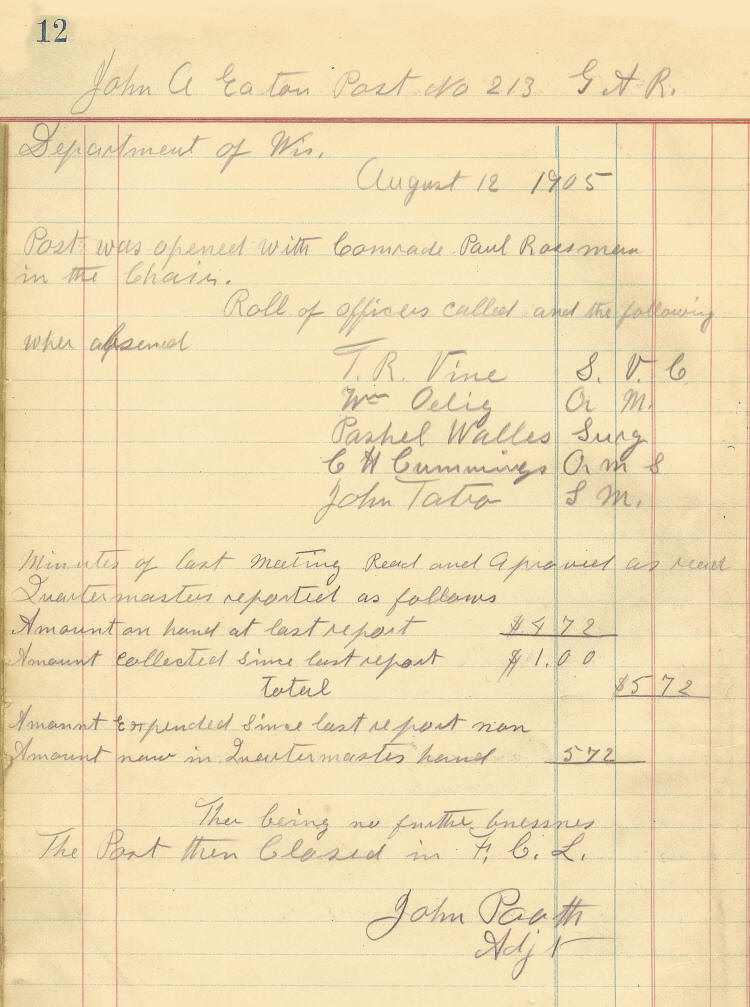 12
John A Eaton Post No 213 G A R.
Department of Wis.
August 12 1905
Post was opened with Comrade Paul Rossman
in the Chair.
Roll of officers called and the following
wher absend
T. R. Vine S. V. C
Wm Oelig Qr M.
Pashel Walles Surg
C H Cummings Qr m S
John Tatro S M.
Minutes of last Meating Read and Aproved as read
Quartermasters reported as follows
Amount on hand at last report $472
Amount Collected Since last report $1.00
total $572
Amount Expended Since last report non
Amount now in Quartermasters hand 572
Ther being no further buessnes
The Post then Closed in F. C. L.
John Paath
Adjt